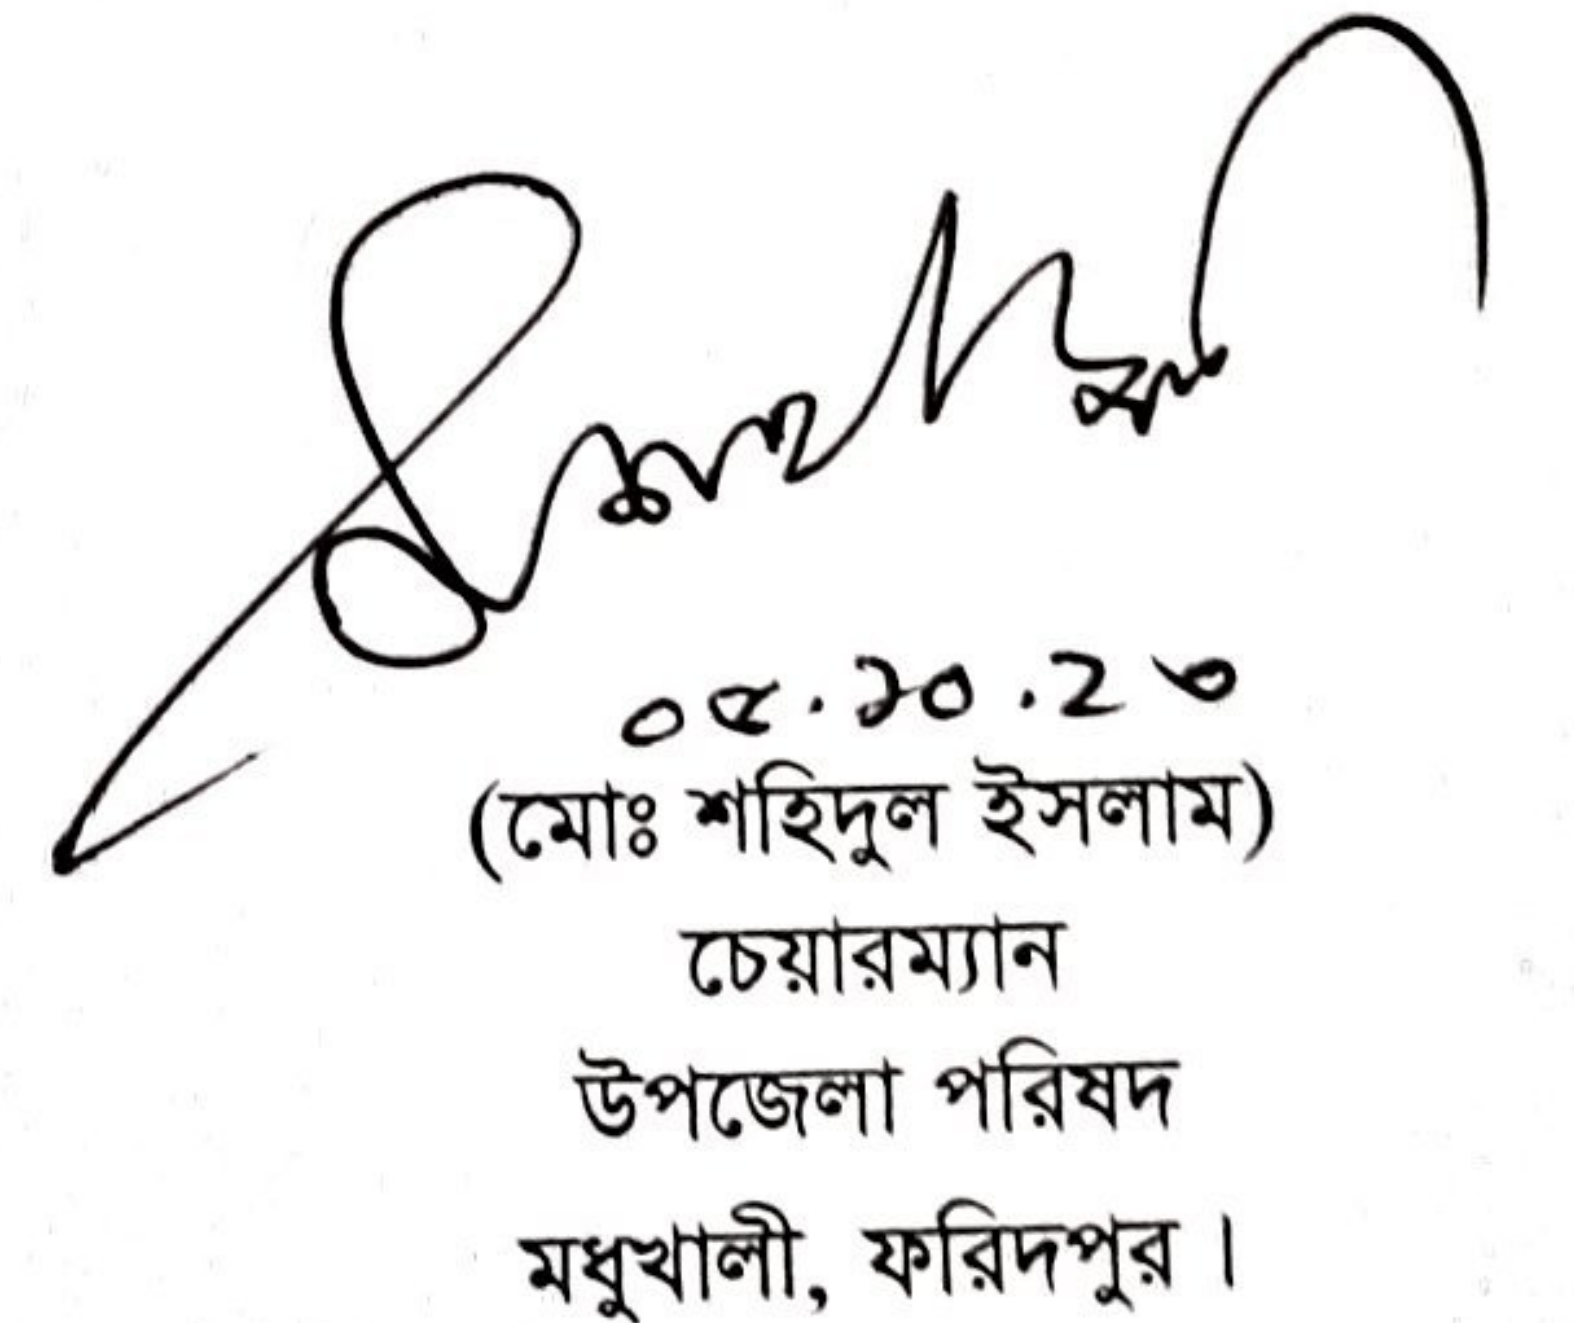 ০৫.১০.২৩
(মোঃ শহিদুল ইসলাম)
চেয়ারম্যান
উপজেলা পরিষদ
মধুখালী, ফরিদপুর।